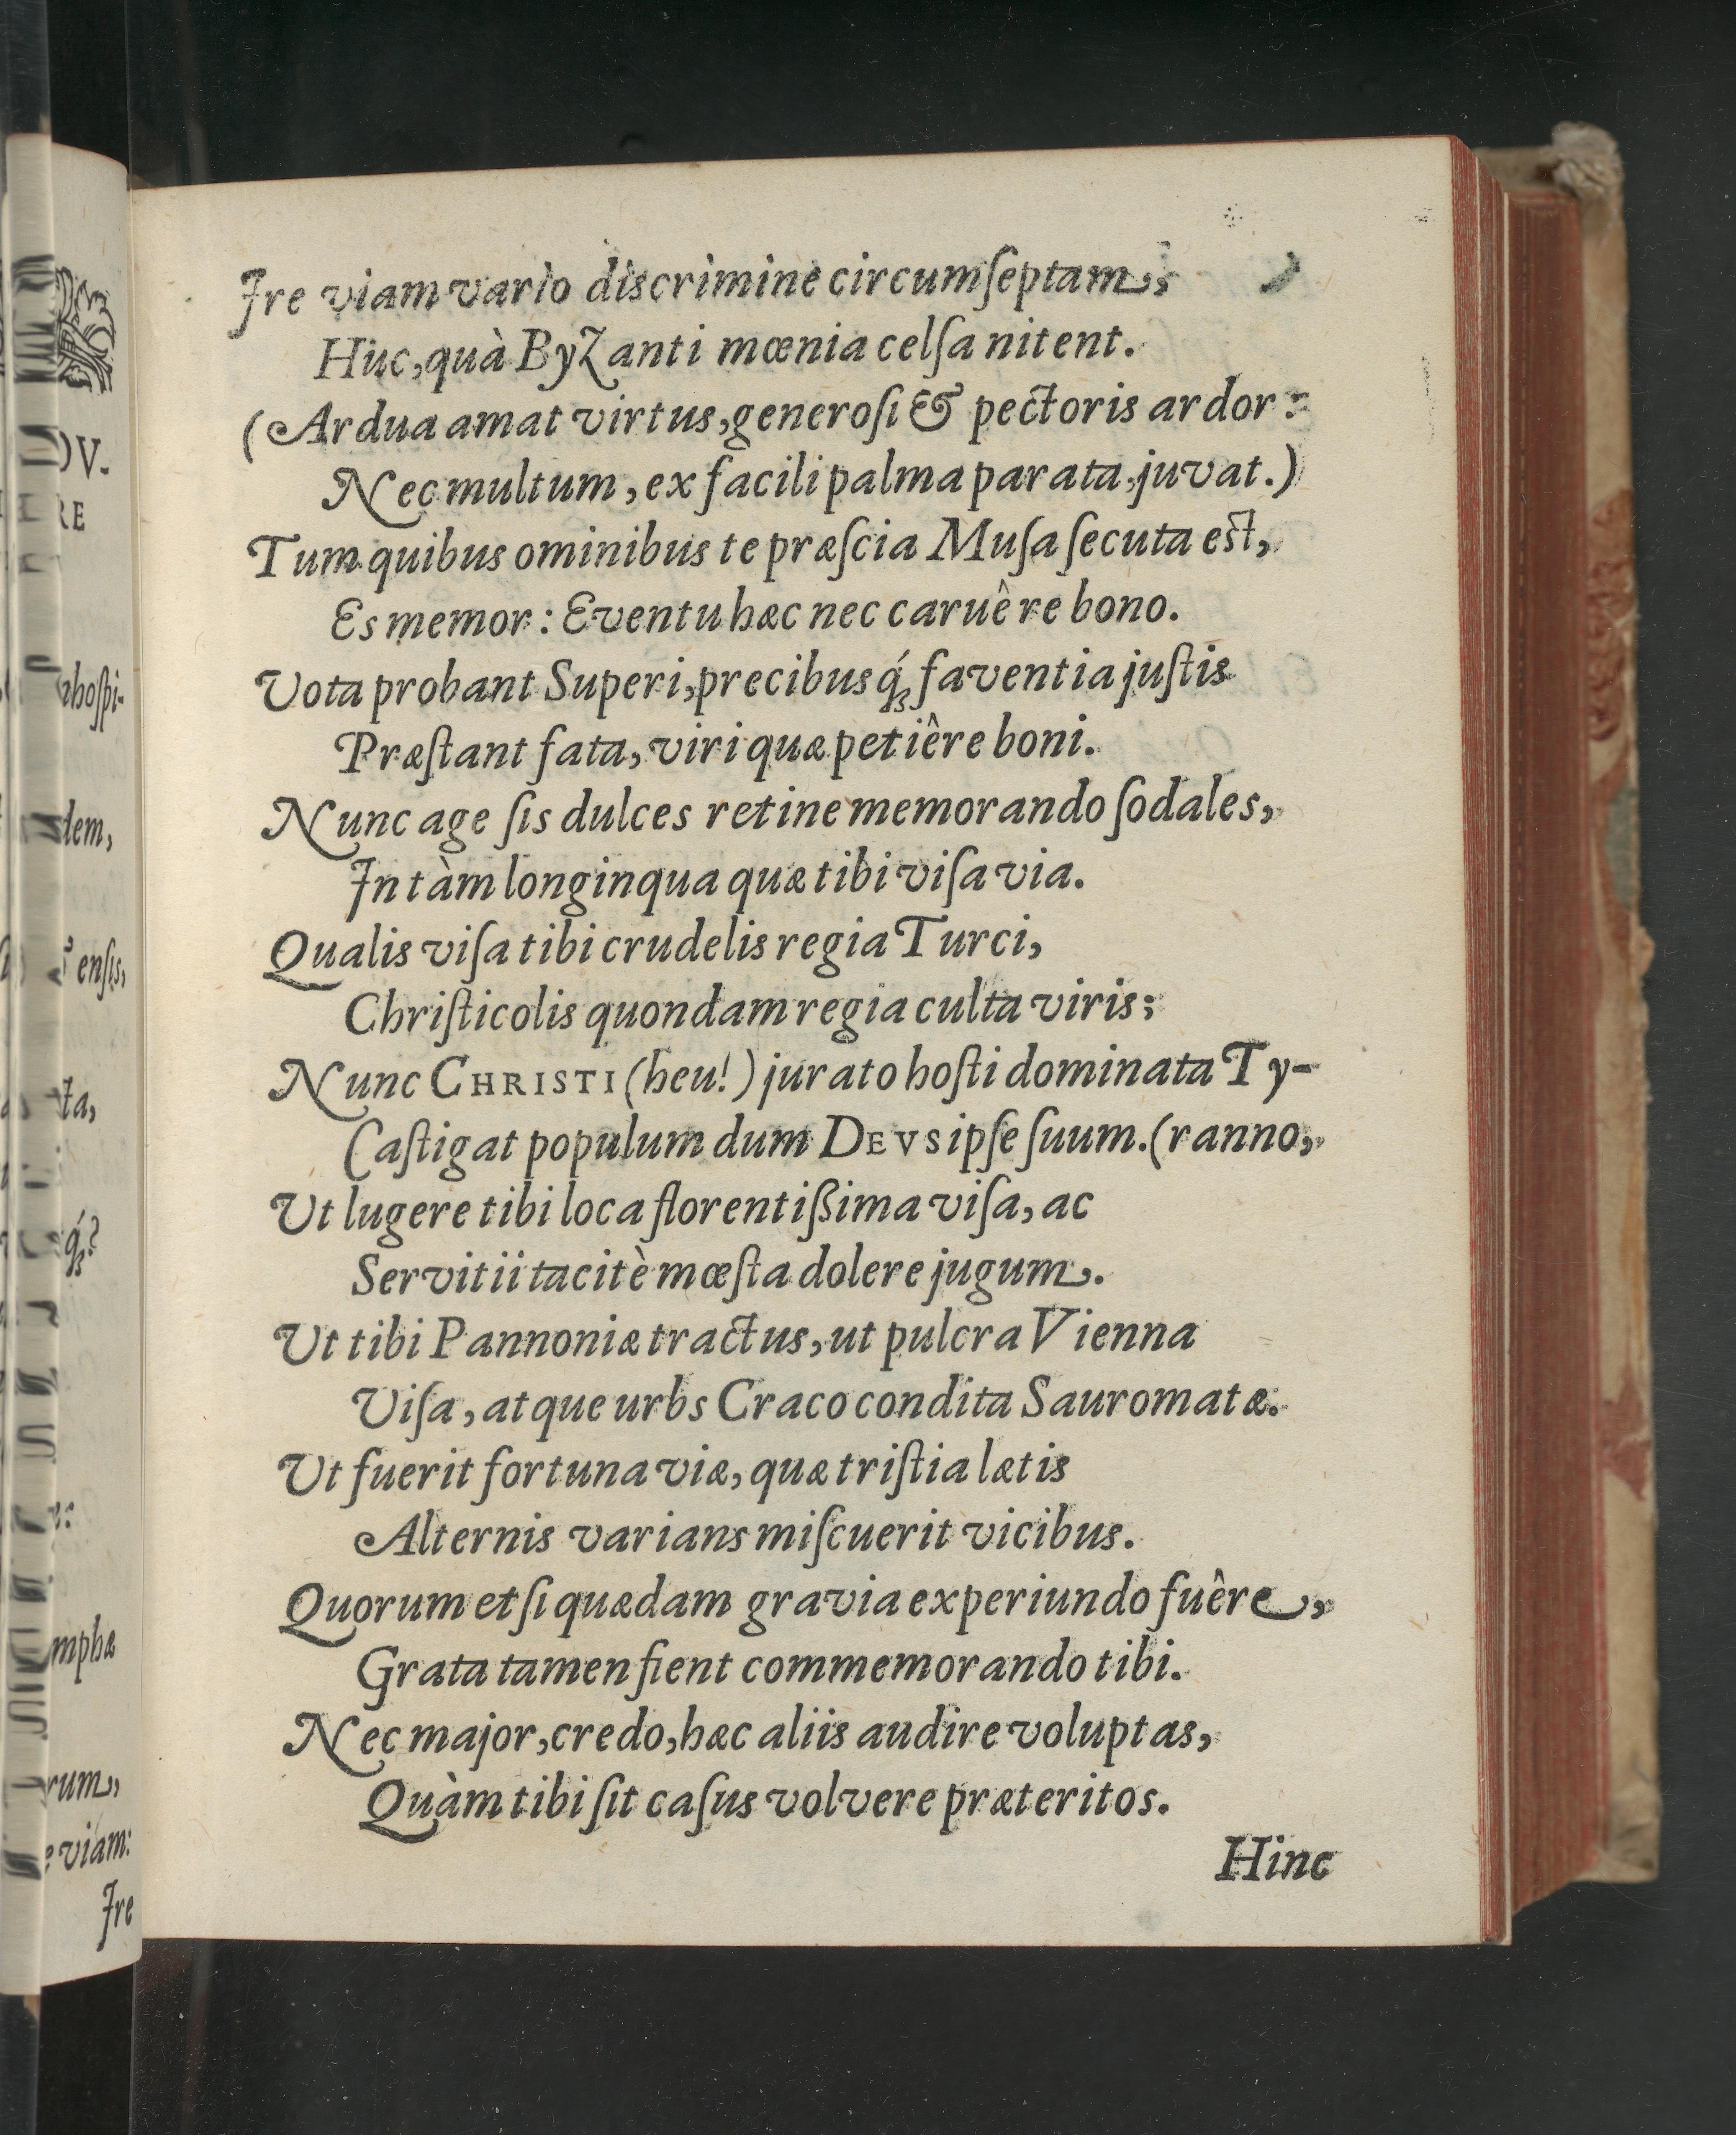 DV.
RE
hoſpi-
dem,
enſis,
ta,
q́;?
mphæ
rum,
e viam:
Ire
Ire viam vario discrimine circumſeptam,
Huc, quà Byzanti mœnia celſa nitent.
(Ardua amat virtus, generoſi & pectoris ardor:
Nec multum, ex facili palma parata, juvat.)
Tum quibus ominibus te præſcia Muſa ſecuta est,
Es memor: Eventu hæc nec caruêre bono.
Vota probant Superi, precibusq́; faventia juſtis
Præſtant fata, viri quæ petiêre boni.
Nunc age ſis dulces retine memorando ſodales,
In tàm longinqua quæ tibi viſa via.
Qualis viſa tibi crudelis regia Turci,
Chriſticolis quondam regia culta viris;
Nunc CHRISTI (heu!) jurato hoſti dominata Ty-
Caſtigat populum dum DEVS ipſe ſuum. (ranno,
Ut lugere tibi loca florentißima viſa, ac
Servitii tacitè mœſta dolere jugum.
Ut tibi Pannoniæ tractus, ut pulcra Vienna
Viſa, atque urbs Craco condita Sauromatæ.
Ut fuerit fortuna viæ, quæ triſtia lætis
Alternis varians miſcuerit vicibus.
Quorum etſi quædam gravia experiundo fuêre,
Grata tamen fient commemorando tibi.
Nec major, credo, hæc aliis audire voluptas,
Quàm tibi ſit caſus volvere præteritos.
Hinc